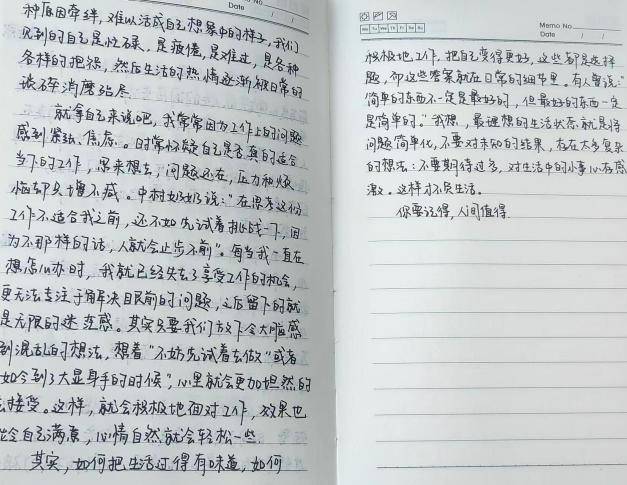 Date
种原因牵绊，难以活成自己想象中的样子，我们
见到的自己是忙碌，是疲惫，是难过，是各种
各样的抱怨，然后生活的热情逐渐被日常的
琐碎消磨殆尽
就拿自己来说吧，我常常因为工作上的问题
感到紧张、焦虑。日常怀疑自己是否真的适合
当下的工作，思来想去，问题还在，压力和烦
恼却只增不减。中村奶奶说："在思考这份
工作不适合我之前，还不如先试着挑战一下，因
为不那样的话，人就会止步不前"。每当我一直在
想怎么办时，我就已经失去了享受工作的机会，
更无法专注于解决目前的问题，之后留下的就
是无限的迷茫感。其实只要我们放下令大脑感
到混乱的想法，想着"不妨先试着去做"或者
"如今到了大显身手的时候"，心里就会更加坦然的
去接受。这样，就会积极地面对工作，效果也
会令自己满意，心情自然就会轻松一些
其实，如何把生活过得有味道，如何
Memo No.
Mo Tu We Th Fr Sa Su
Date / /
积极地工作，把自己变得更好，这些都是选择
题，而这些答案就在日常的细节里。有人曾说："
简单的东西不一定是最好的，但最好的东西一定
是简单的。"我想，最理想的生活状态就是将
问题简单化，不要对未知的结果，存在太多复杂
的想法：不要期待过多，对生活中的小事心存感
激。这样才不负生活。
你要记得，人间值得.